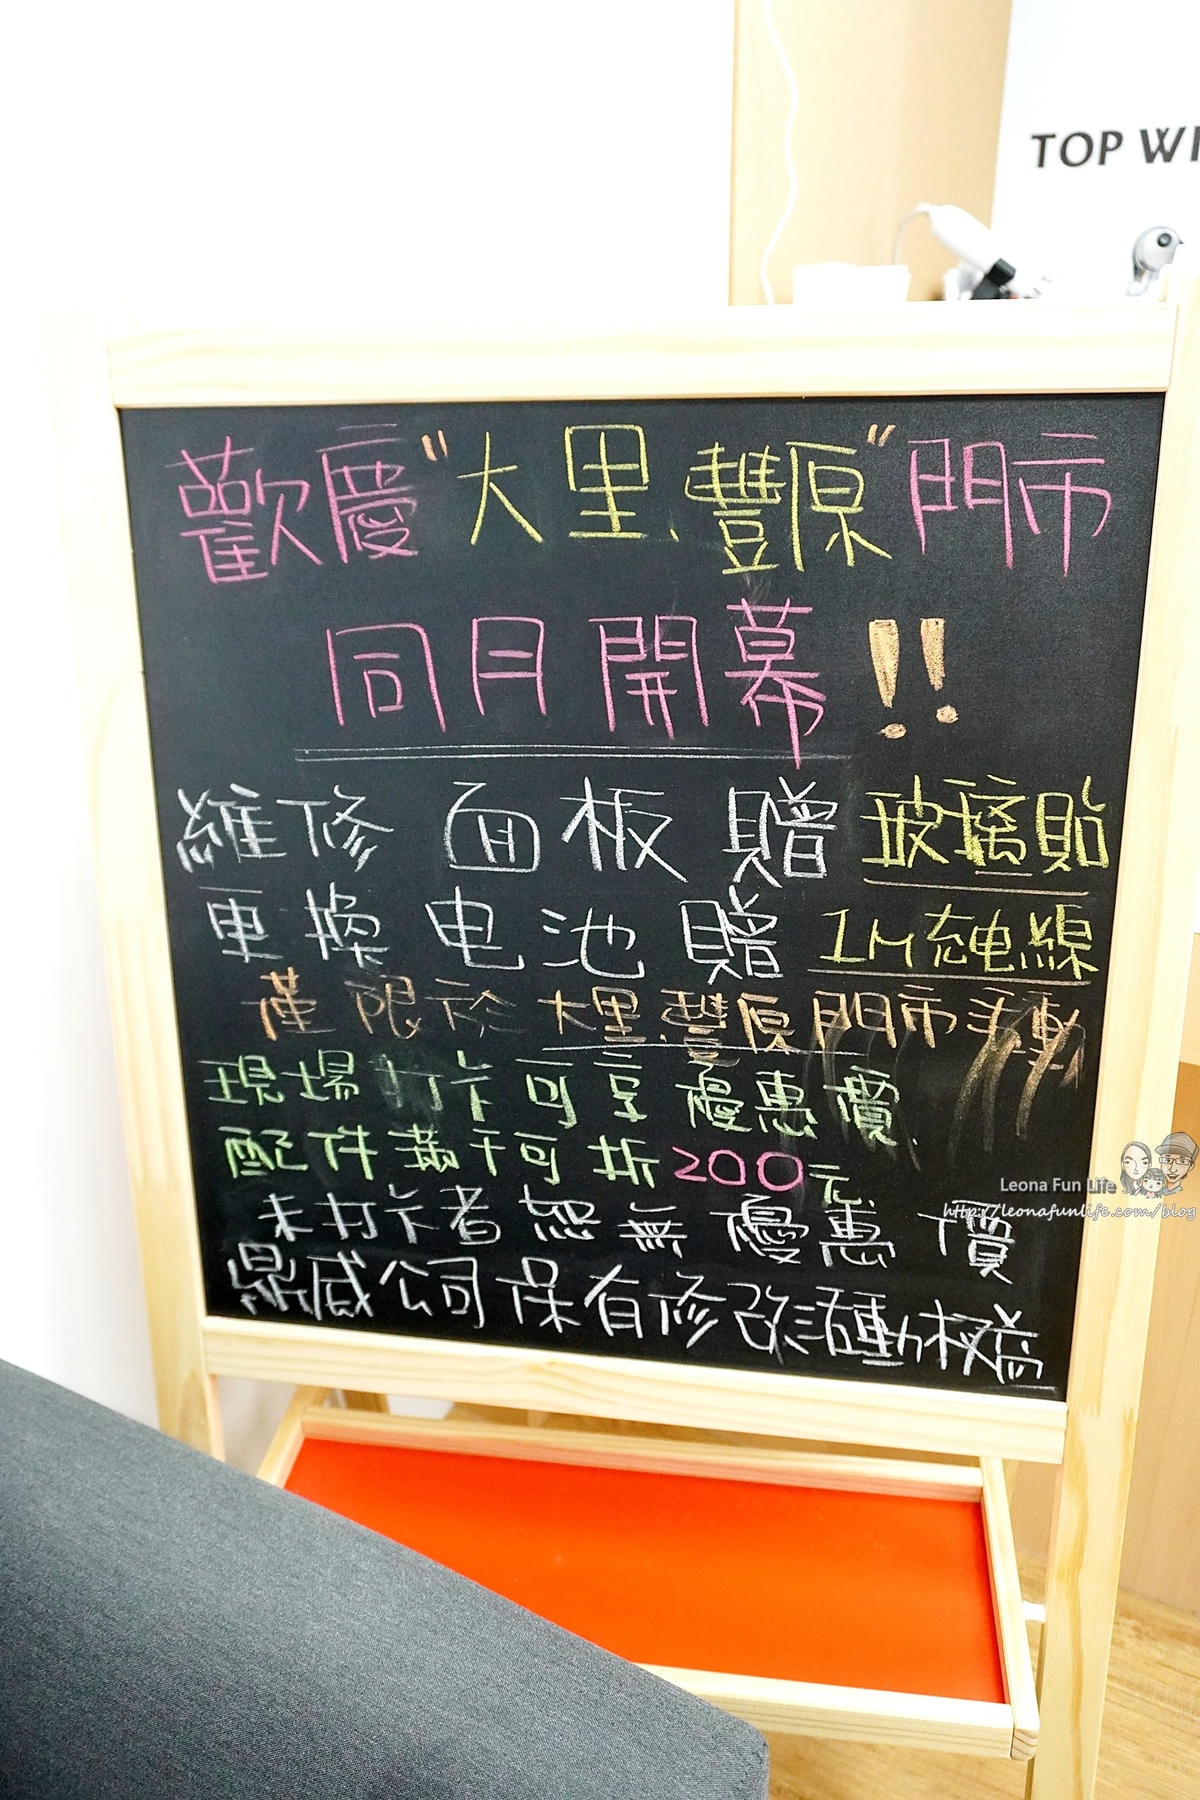 TOP WI
歡慶"大里、豐原"門市
同月開幕!!
維修面板贈玻璃貼
更換电池贈1M充电線
僅限於大里.豐原門市活動
現場打卡可享優惠價.
配件滿千可折200元.
未打卡者恕無優惠價
鼎威公司保有修改活動權
Leona Fun Life
http://leonafunlife.com/blog